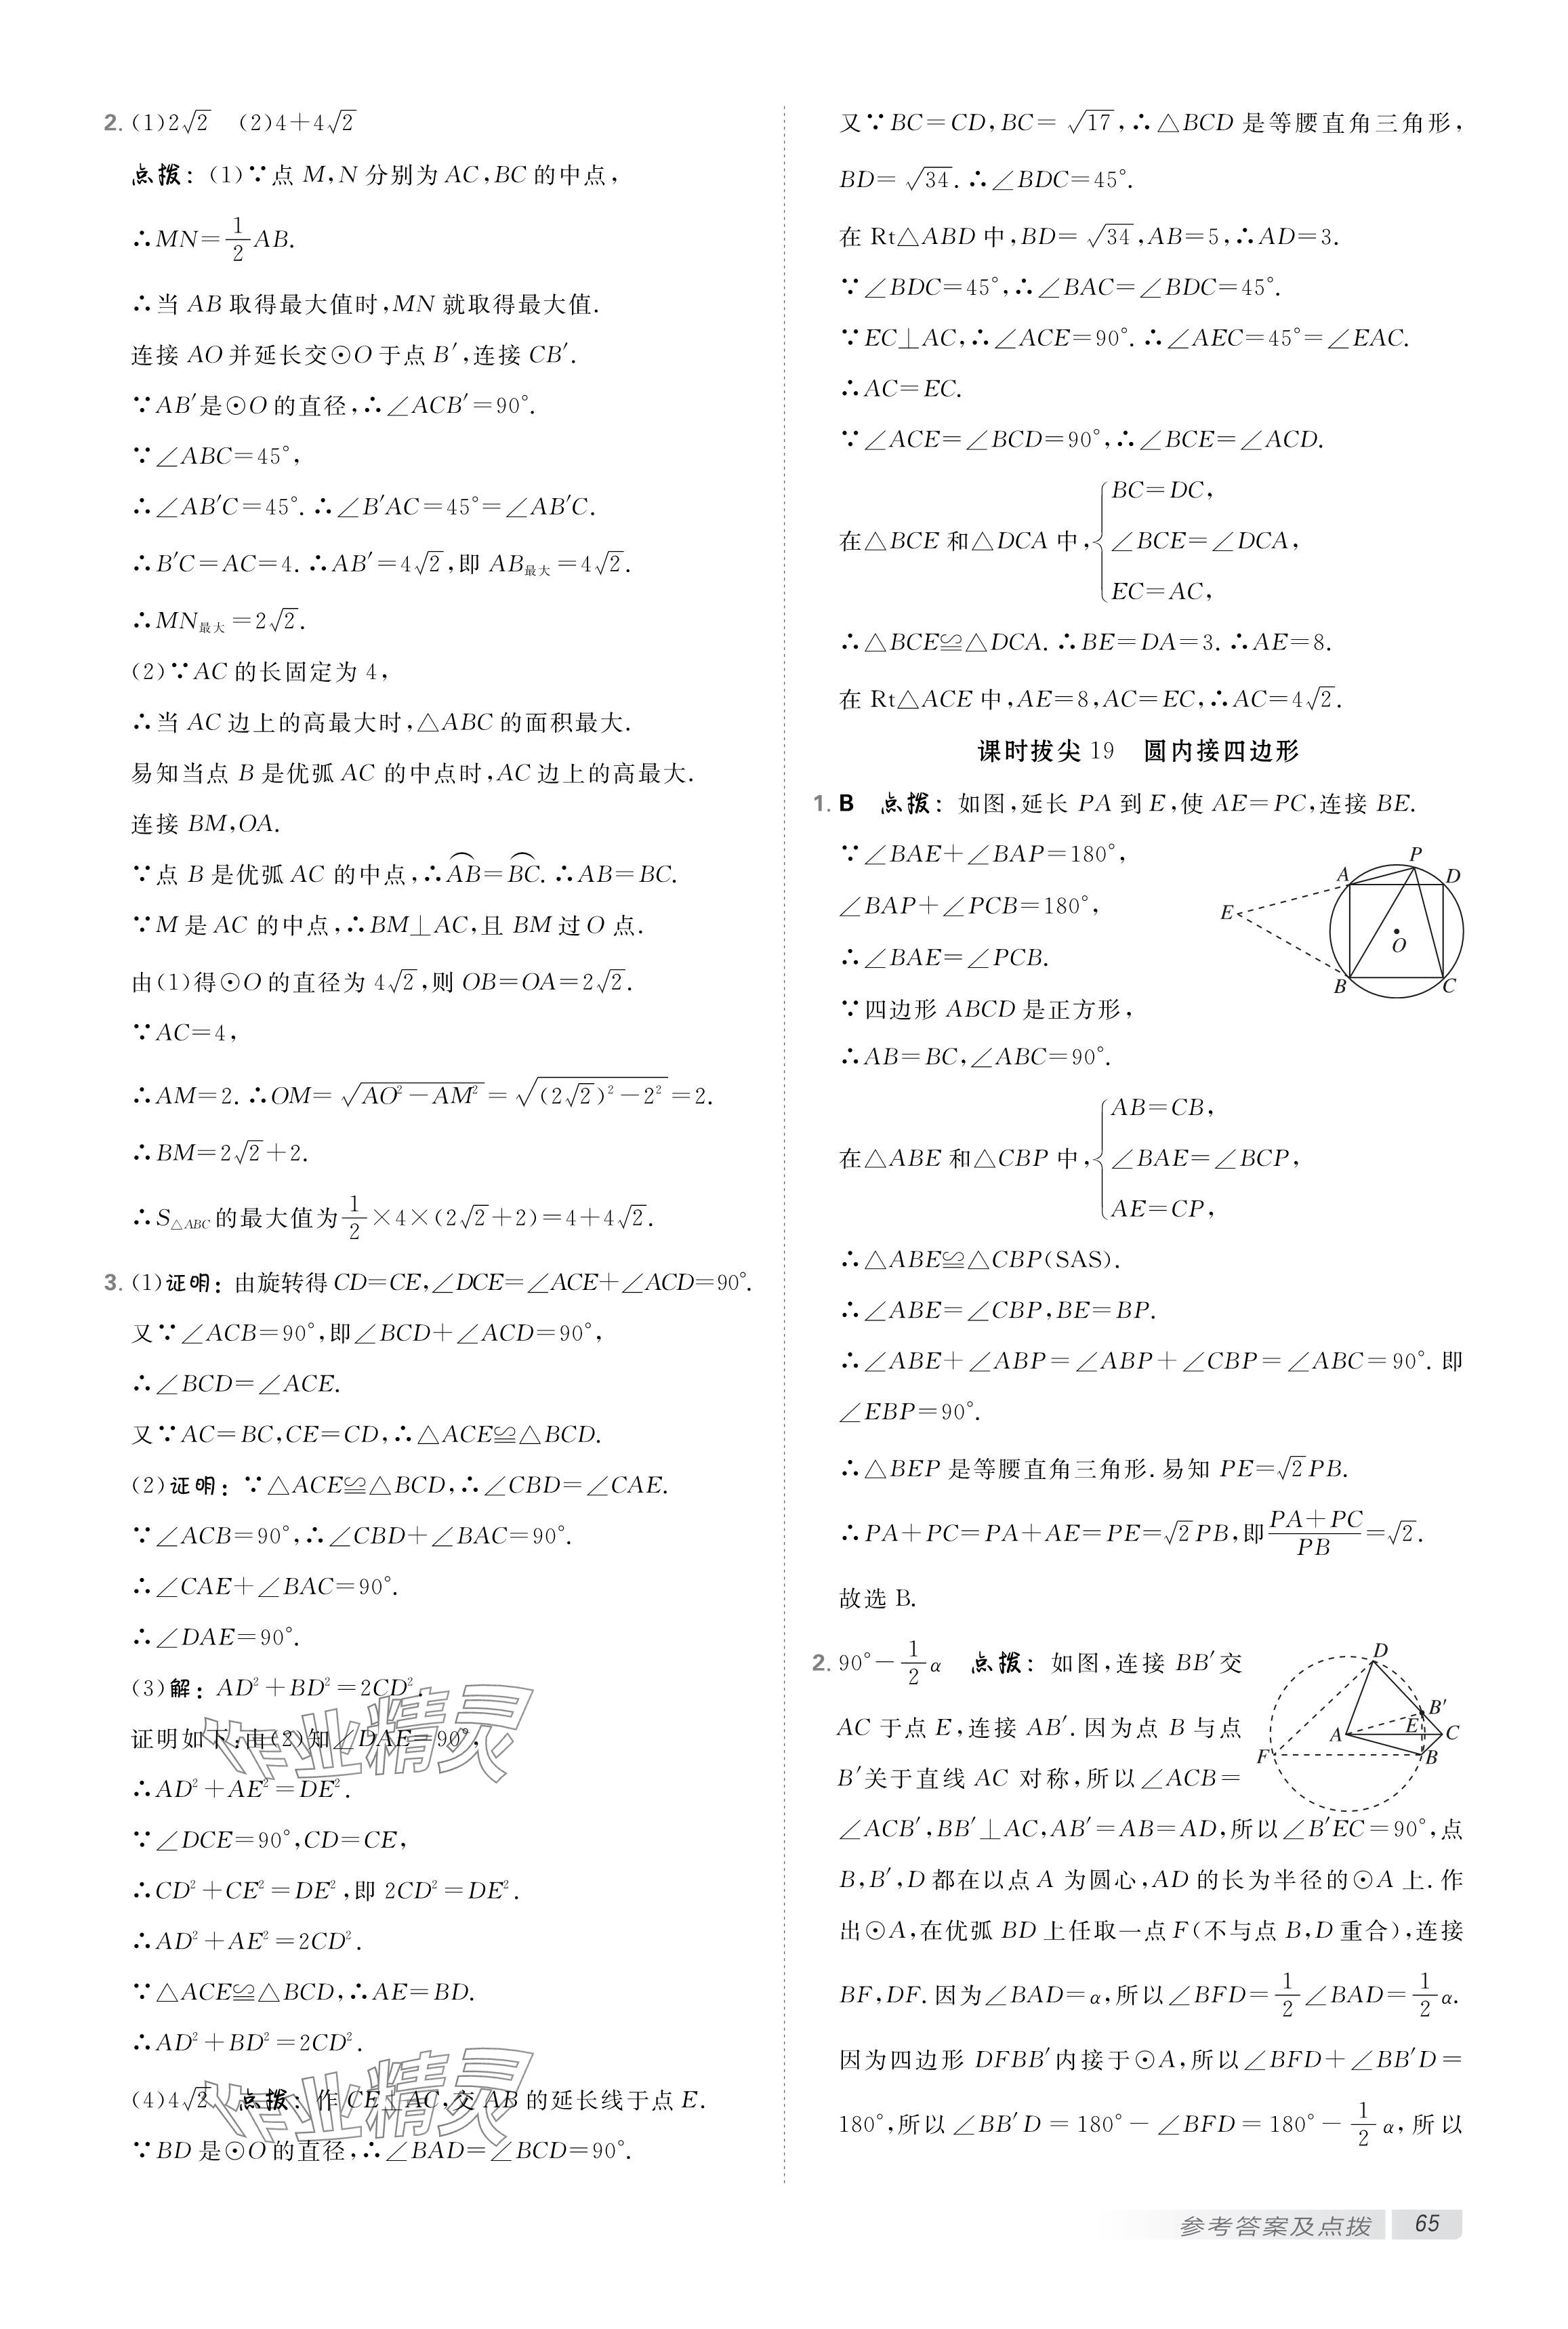 2. (1)2√2 (2)4+4√2
点拨：(1)∵点 M,N 分别为 AC,BC 的中点,
∴MN=1/2 AB.
∴当 AB 取得最大值时,MN 就取得最大值.
连接 AO 并延长交⊙O 于点 B′,连接 CB′.
∵AB′是⊙O 的直径,∴∠ACB′=90°.
∵∠ABC=45°,
∴∠AB′C=45°.∴∠B′AC=45°=∠AB′C.
∴B′C=AC=4.∴AB′=4√2,即 AB最大=4√2.
∴MN最大=2√2.
(2)∵AC 的长固定为 4,
∴当 AC 边上的高最大时,△ABC 的面积最大.
易知当点 B 是优弧 AC 的中点时,AC 边上的高最大.
连接 BM,OA.
∵点 B 是优弧 AC 的中点,∴⌒AB=⌒BC.∴AB=BC.
∵M 是 AC 的中点,∴BM⊥AC,且 BM 过 O 点.
由(1)得⊙O 的直径为 4√2,则 OB=OA=2√2.
∵AC=4,
∴AM=2.∴OM=√(AO²−AM²)=√((2√2)²−2²)=2.
∴BM=2√2+2.
∴S△ABC的最大值为1/2×4×(2√2+2)=4+4√2.
3. (1)证明：由旋转得 CD=CE,∠DCE=∠ACE+∠ACD=90°.
又∵∠ACB=90°,即∠BCD+∠ACD=90°,
∴∠BCD=∠ACE.
又∵AC=BC,CE=CD,∴△ACE≌△BCD.
(2)证明：∵△ACE≌△BCD,∴∠CBD=∠CAE.
∵∠ACB=90°,∴∠CBD+∠BAC=90°.
∴∠CAE+∠BAC=90°.
∴∠DAE=90°.
(3)解：AD²+BD²=2CD².
证明如下:由(2)知∠DAE=90°,
∴AD²+AE²=DE².
∵∠DCE=90°,CD=CE,
∴CD²+CE²=DE²,即 2CD²=DE².
∴AD²+AE²=2CD².
∵△ACE≌△BCD,∴AE=BD.
∴AD²+BD²=2CD².
(4)4√2 点拨：作 CE⊥AC,交 AB 的延长线于点 E.
∵BD 是⊙O 的直径,∴∠BAD=∠BCD=90°.
作业精灵
作业精灵
又∵BC=CD,BC=√17,∴△BCD 是等腰直角三角形,
BD=√34.∴∠BDC=45°.
在 Rt△ABD 中,BD=√34,AB=5,∴AD=3.
∵∠BDC=45°,∴∠BAC=∠BDC=45°.
∵EC⊥AC,∴∠ACE=90°.∴∠AEC=45°=∠EAC.
∴AC=EC.
∵∠ACE=∠BCD=90°,∴∠BCE=∠ACD.
BC=DC,
在△BCE 和△DCA 中,{∠BCE=∠DCA,
EC=AC,
∴△BCE≌△DCA.∴BE=DA=3.∴AE=8.
在 Rt△ACE 中,AE=8,AC=EC,∴AC=4√2.
课时拔尖 19 圆内接四边形
1. B 点拨：如图,延长 PA 到 E,使 AE=PC,连接 BE.
∵∠BAE+∠BAP=180°,
∠BAP+∠PCB=180°,
∴∠BAE=∠PCB.
∵四边形 ABCD 是正方形,
∴AB=BC,∠ABC=90°.
P
A
D
E
O
B
C
AB=CB,
在△ABE 和△CBP 中,{∠BAE=∠BCP,
AE=CP,
∴△ABE≌△CBP(SAS).
∴∠ABE=∠CBP,BE=BP.
∴∠ABE+∠ABP=∠ABP+∠CBP=∠ABC=90°.即
∠EBP=90°.
∴△BEP 是等腰直角三角形.易知 PE=√2PB.
∴PA+PC=PA+AE=PE=√2PB,即(PA+PC)/PB=√2.
故选 B.
2. 90°−1/2α 点拨：如图,连接 BB′交
AC 于点 E,连接 AB′.因为点 B 与点
B′关于直线 AC 对称,所以∠ACB=
D
B′
E
A
C
F
B
∠ACB′,BB′⊥AC,AB′=AB=AD,所以∠B′EC=90°,点
B,B′,D 都在以点 A 为圆心,AD 的长为半径的⊙A 上.作
出⊙A,在优弧 BD 上任取一点 F(不与点 B,D 重合),连接
BF,DF.因为∠BAD=α,所以∠BFD=1/2∠BAD=1/2α.
因为四边形 DFBB′内接于⊙A,所以∠BFD+∠BB′D=
180°,所以∠BB′D=180°−∠BFD=180°−1/2α,所以
参考答案及点拨 65